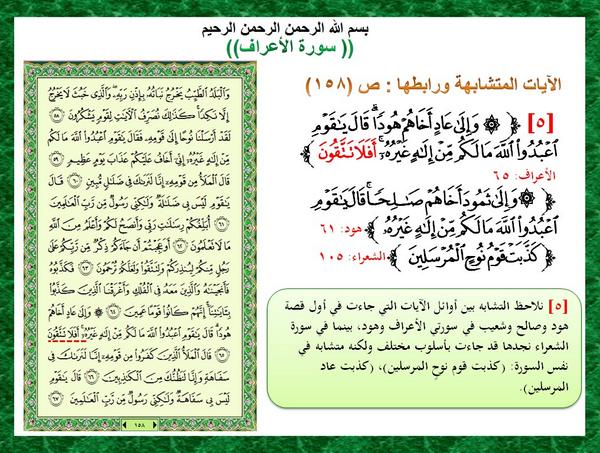 بسم الله الرحمن الرحمن الرحيم
(( سورة الأعراف ))
الآيات المتشابهة ورابطها : ص (١٥٨)
[٥] ﴿ ۞ وَإِلَىٰ عَادٍ أَخَاهُمْ هُودًا ۗ قَالَ يَـٰقَوْمِ
ٱعْبُدُوا۟ ٱللَّهَ مَا لَكُم مِّنْ إِلَـٰهٍ غَيْرُهُۥٓ ۚ أَفَلَا تَتَّقُونَ ﴾
الأعراف: ٦٥
﴿ ۞ وَإِلَىٰ ثَمُودَ أَخَاهُمْ صَـٰلِحًا ۚ قَالَ يَـٰقَوْمِ
ٱعْبُدُوا۟ ٱللَّهَ مَا لَكُم مِّنْ إِلَـٰهٍ غَيْرُهُۥ ﴾ هود: ٦١
﴿ كَذَّبَتْ قَوْمُ نُوحٍ ٱلْمُرْسَلِينَ ﴾ الشعراء: ١٠٥
[٥] نلاحظ التشابه بين أوائل الآيات التي جاءت في أول قصة
هود وصالح وشعيب في سورتي الأعراف وهود، بينما في سورة
الشعراء نجدها قد جاءت بأسلوب مختلف ولكنه متشابه في
نفس السورة: (كذبت قوم نوحٍ المرسلين)، (كذبت عاد
المرسلين).
وَٱلْبَلَدُ ٱلطَّيِّبُ يَخْرُجُ نَبَاتُهُۥ بِإِذْنِ رَبِّهِۦ ۖ وَٱلَّذِى خَبُثَ لَا يَخْرُجُ
إِلَّا نَكِدًا ۚ كَذَٰلِكَ نُصَرِّفُ ٱلْـَٔايَـٰتِ لِقَوْمٍ يَشْكُرُونَ ٥٨
لَقَدْ أَرْسَلْنَا نُوحًا إِلَىٰ قَوْمِهِۦ فَقَالَ يَـٰقَوْمِ ٱعْبُدُوا۟ ٱللَّهَ مَا لَكُم
مِّنْ إِلَـٰهٍ غَيْرُهُۥٓ إِنِّىٓ أَخَافُ عَلَيْكُمْ عَذَابَ يَوْمٍ عَظِيمٍ ٥٩
قَالَ ٱلْمَلَأُ مِن قَوْمِهِۦٓ إِنَّا لَنَرَىٰكَ فِى ضَلَـٰلٍ مُّبِينٍ ٦٠ قَالَ يَـٰقَوْمِ
لَيْسَ بِى ضَلَـٰلَةٌ وَلَـٰكِنِّى رَسُولٌ مِّن رَّبِّ ٱلْعَـٰلَمِينَ ٦١
أُبَلِّغُكُمْ رِسَـٰلَـٰتِ رَبِّى وَأَنصَحُ لَكُمْ وَأَعْلَمُ مِنَ ٱللَّهِ
مَا لَا تَعْلَمُونَ ٦٢ أَوَعَجِبْتُمْ أَن جَآءَكُمْ ذِكْرٌ مِّن رَّبِّكُمْ عَلَىٰ
رَجُلٍ مِّنكُمْ لِيُنذِرَكُمْ وَلِتَتَّقُوا۟ وَلَعَلَّكُمْ تُرْحَمُونَ ٦٣ فَكَذَّبُوهُ
فَأَنجَيْنَـٰهُ وَٱلَّذِينَ مَعَهُۥ فِى ٱلْفُلْكِ وَأَغْرَقْنَا ٱلَّذِينَ كَذَّبُوا۟
بِـَٔايَـٰتِنَآ ۚ إِنَّهُمْ كَانُوا۟ قَوْمًا عَمِينَ ٦٤ ۞ وَإِلَىٰ عَادٍ أَخَاهُمْ
هُودًا ۗ قَالَ يَـٰقَوْمِ ٱعْبُدُوا۟ ٱللَّهَ مَا لَكُم مِّنْ إِلَـٰهٍ غَيْرُهُۥٓ ۚ أَفَلَا تَتَّقُونَ
٦٥ قَالَ ٱلْمَلَأُ ٱلَّذِينَ كَفَرُوا۟ مِن قَوْمِهِۦٓ إِنَّا لَنَرَىٰكَ فِى
سَفَاهَةٍ وَإِنَّا لَنَظُنُّكَ مِنَ ٱلْكَـٰذِبِينَ ٦٦ قَالَ يَـٰقَوْمِ
لَيْسَ بِى سَفَاهَةٌ وَلَـٰكِنِّى رَسُولٌ مِّن رَّبِّ ٱلْعَـٰلَمِينَ ٦٧
١٥٨